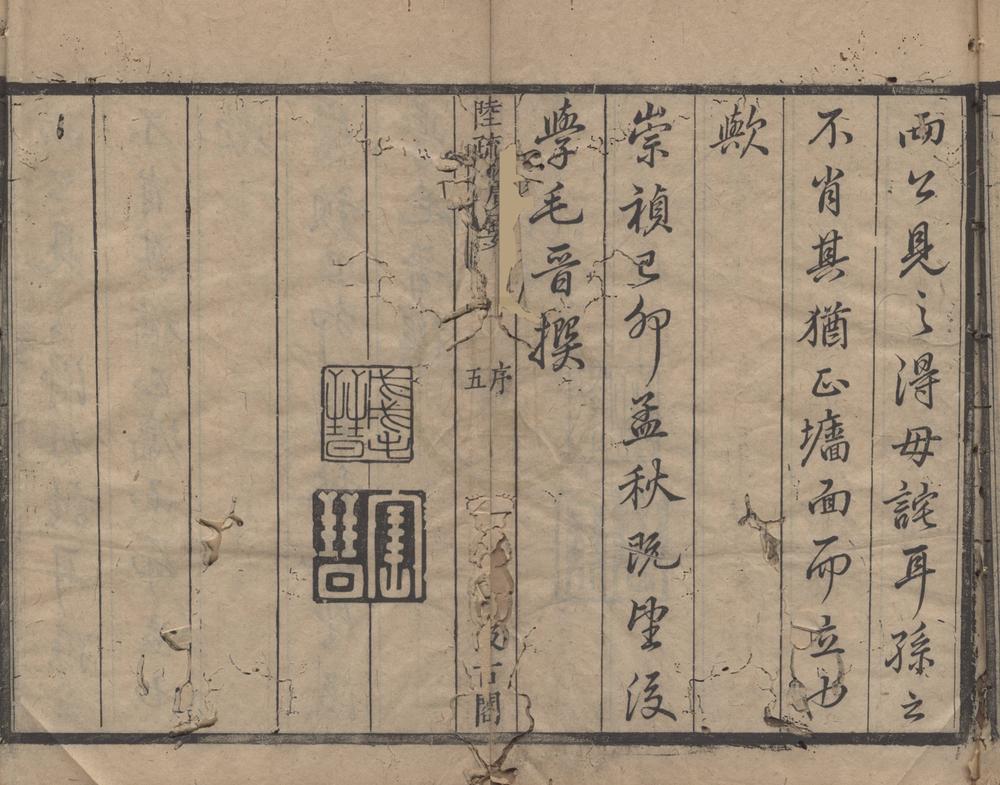 兩公見之得毋詫耳孫之
不肖其猶正墻面而立也
歟
崇禎己卯孟秋既望後
學毛晉撰
陸疏廣要
序
五
汲古閣
戊戌毛晉